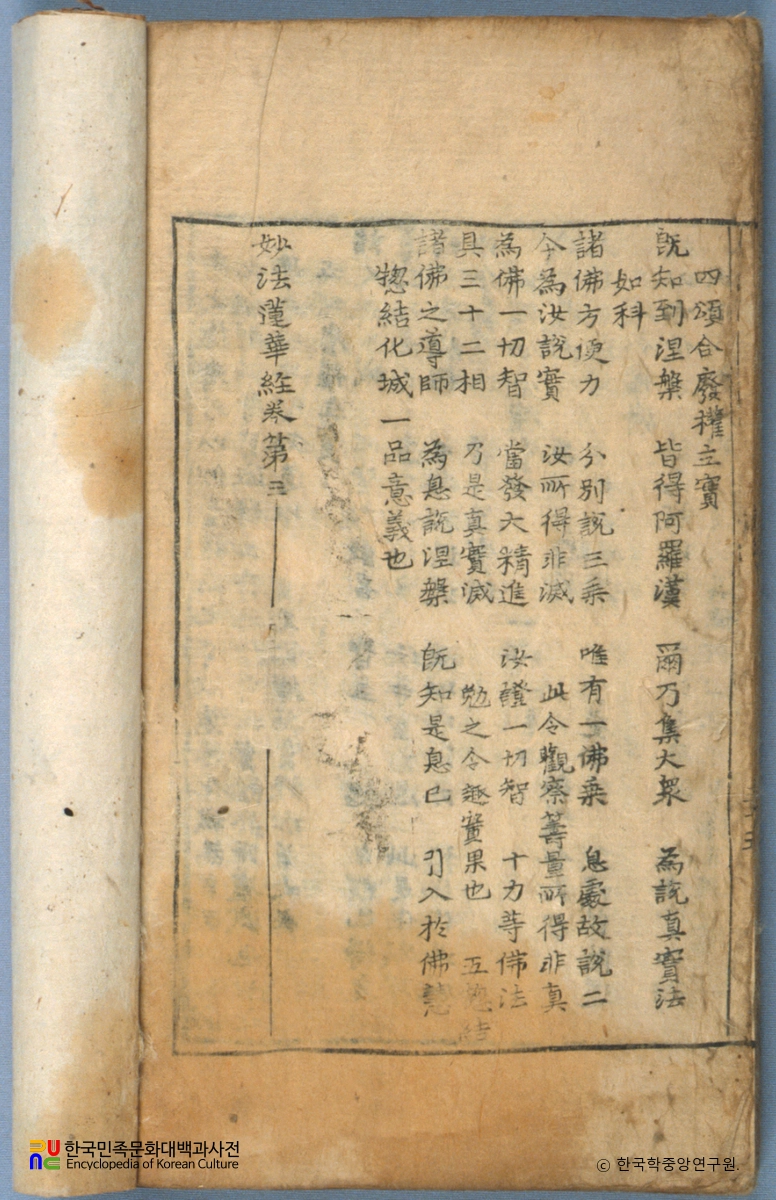 四頌合廢權立實
既知到涅槃 皆得阿羅漢 爾乃集大衆 為說真實法
如科
諸佛方便力 分別說三乘 唯有一佛乘 息處故說二
今為汝說實 汝所得非滅 此令觀察籌量所得非真
為佛一切智 當發大精進 汝證一切智 十力等佛法
具三十二相 乃是真實滅 勉之令趣實果也 五惣結
諸佛之導師 為息說涅槃 既知是息已 引入於佛慧
惣結化城一品意義也
妙法蓮華經卷第三
한국민족문화대백과사전
Encyclopedia of Korean Culture
© 한국학중앙연구원.